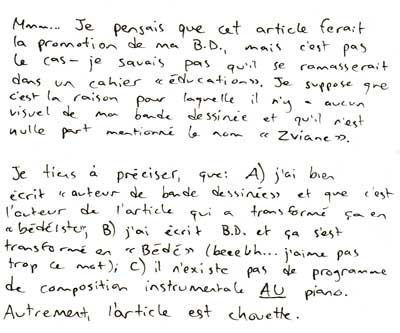 Mmm... Je pensais que cet article ferait
la promotion de ma B.D., mais c'est pas
le cas - je savais pas qu'il se ramasserait
dans un cahier « éducation ». Je suppose que
c'est la raison pour laquelle il n'y a aucun
visuel de ma bande dessinée et qu'il n'est
nulle part mentionné le nom « Zviane ».
Je tiens à préciser, que: A) j'ai bien
écrit « auteur de bande dessinée » et que c'est
l'auteur de l'article qui a transformé ça en
« bédéiste »; B) j'ai écrit B.D. et ça s'est
transformé en « Bédé » (beeebh... j'aime pas
trop ce mot); C) il n'existe pas de programme
de composition instrumentale AU piano.
Autrement, l'article est chouette.